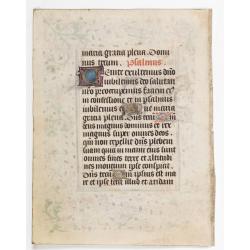 maria gratia plena Domi
nus tecum. Psalmus.
Venite exultemus dno
iubilemus deo salutari
nro preocupemus faciem eius
in confessione et in psalmis
iubilemus ei Ave maria
gratia plena Dns tecum
deus magnus dominus et rex
magnus super omnes deos
qm non repellit dns plebem
suam quia in manu eius sunt
omnes fines terre et altitudi
nes montium ipse conspicit
Dns tecum ipsius est ma
re et ipse fecit illud et aridam